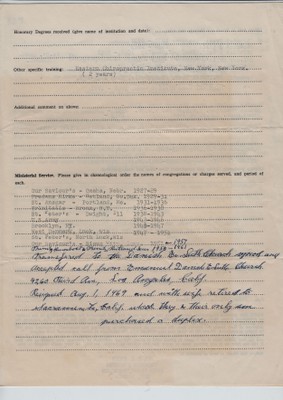 Honorary Degrees received (give name of institution and date):
Other specific training: Eastern Chiropractic Institute, New York, New York.
( 2 years)
Additional comment on above:
Ministerial Service. Please give in chronological order the names of congregations or charges served, and period of
each.
Our Saviour's - Omaha, Nebr. 1927-29
1929-31
St. Ansgar - Portland, Me. 1931-1936
1936-1938
St. Peter's - Dwight, Ill 1938-1943
U.S Army 1943-1946
Brooklyn, NY. 1946-1947
West Denmark, Luck, Wis
St. Peter's, North Luck, Wis
Transferred to the Danish Ev. Luth Church synod and
accepted call from Emanuel Danish Ev Luth Church
4260 Third Ave, Los Angeles, Calif.
Resigned Aug 1, 1969 and with wife retired to
Sacramento, Calif. which they & their only son
purchased a duplex.